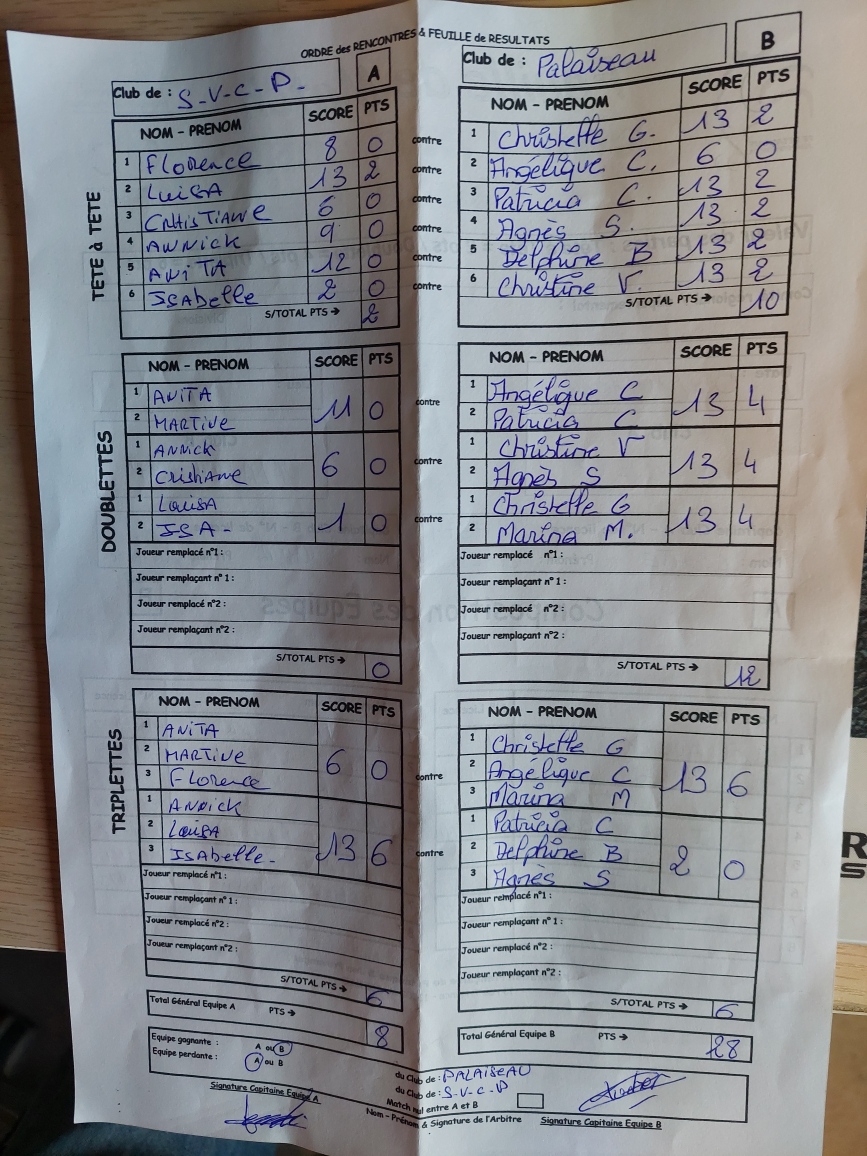 ORDRE des RENCONTRES & FEUILLE de RESULTATS
Club de : S-V-C-P- A
Club de : Palaiseau B
TETE à TETE
NOM - PRENOM SCORE PTS
NOM - PRENOM SCORE PTS
1 Florence 8 0 contre 1 Christelle G. 13 2
2 LuiSA 13 2 contre 2 Angélique C. 6 0
3 CRHISTIANE 6 0 contre 3 Patricia C. 13 2
4 ANNICK 9 0 contre 4 Agnès S. 13 2
5 ANiTA 12 0 contre 5 Delphine B 13 2
6 ISAbelle 2 0 contre 6 Christine V. 13 2
S/TOTAL PTS → 2
S/TOTAL PTS → 10
DOUBLETTES
NOM - PRENOM SCORE PTS
NOM - PRENOM SCORE PTS
1 ANiTA
2 MARTiNe
11 0 contre
1 Angélique C
2 Patricia C
13 4
1 ANNicK
2 CRishiANe
6 0 contre
1 Christine V
2 Agnès S
13 4
1 LouiSA
2 ISA-
1 0 contre
1 Christelle G
2 Marina M.
13 4
Joueur remplacé n°1 :
Joueur remplaçant n° 1 :
Joueur remplacé n°2 :
Joueur remplaçant n°2 :
S/TOTAL PTS → 0
Joueur remplacé n°1 :
Joueur remplaçant n° 1 :
Joueur remplacé n°2 :
Joueur remplaçant n°2 :
S/TOTAL PTS → 12
TRIPLETTES
NOM - PRENOM SCORE PTS
NOM - PRENOM SCORE PTS
1 ANiTA
2 MARTiNe
3 Florence
6 0 contre
1 Christelle G
2 Angélique C
3 Marina M
13 6
1 ANNicK
2 LouiSA
3 ISAbelle-
13 6 contre
1 Patricia C
2 Delphine B
3 Agnès S
2 0
Joueur remplacé n°1 :
Joueur remplaçant n° 1 :
Joueur remplacé n°2 :
Joueur remplaçant n°2 :
S/TOTAL PTS → 6
Joueur remplacé n°1 :
Joueur remplaçant n°1 :
Joueur remplacé n°2 :
Joueur remplaçant n°2 :
S/TOTAL PTS → 6
Total Général Equipe A PTS → 8
Total Général Equipe B PTS → 28
Equipe gagnante : A ou B du Club de : PALAISEAU
Equipe perdante : A ou B du Club de : S-V-C-P
Match nul entre A et B
Signature Capitaine Equipe A
Nom - Prénom & Signature de l'Arbitre
Signature Capitaine Equipe B